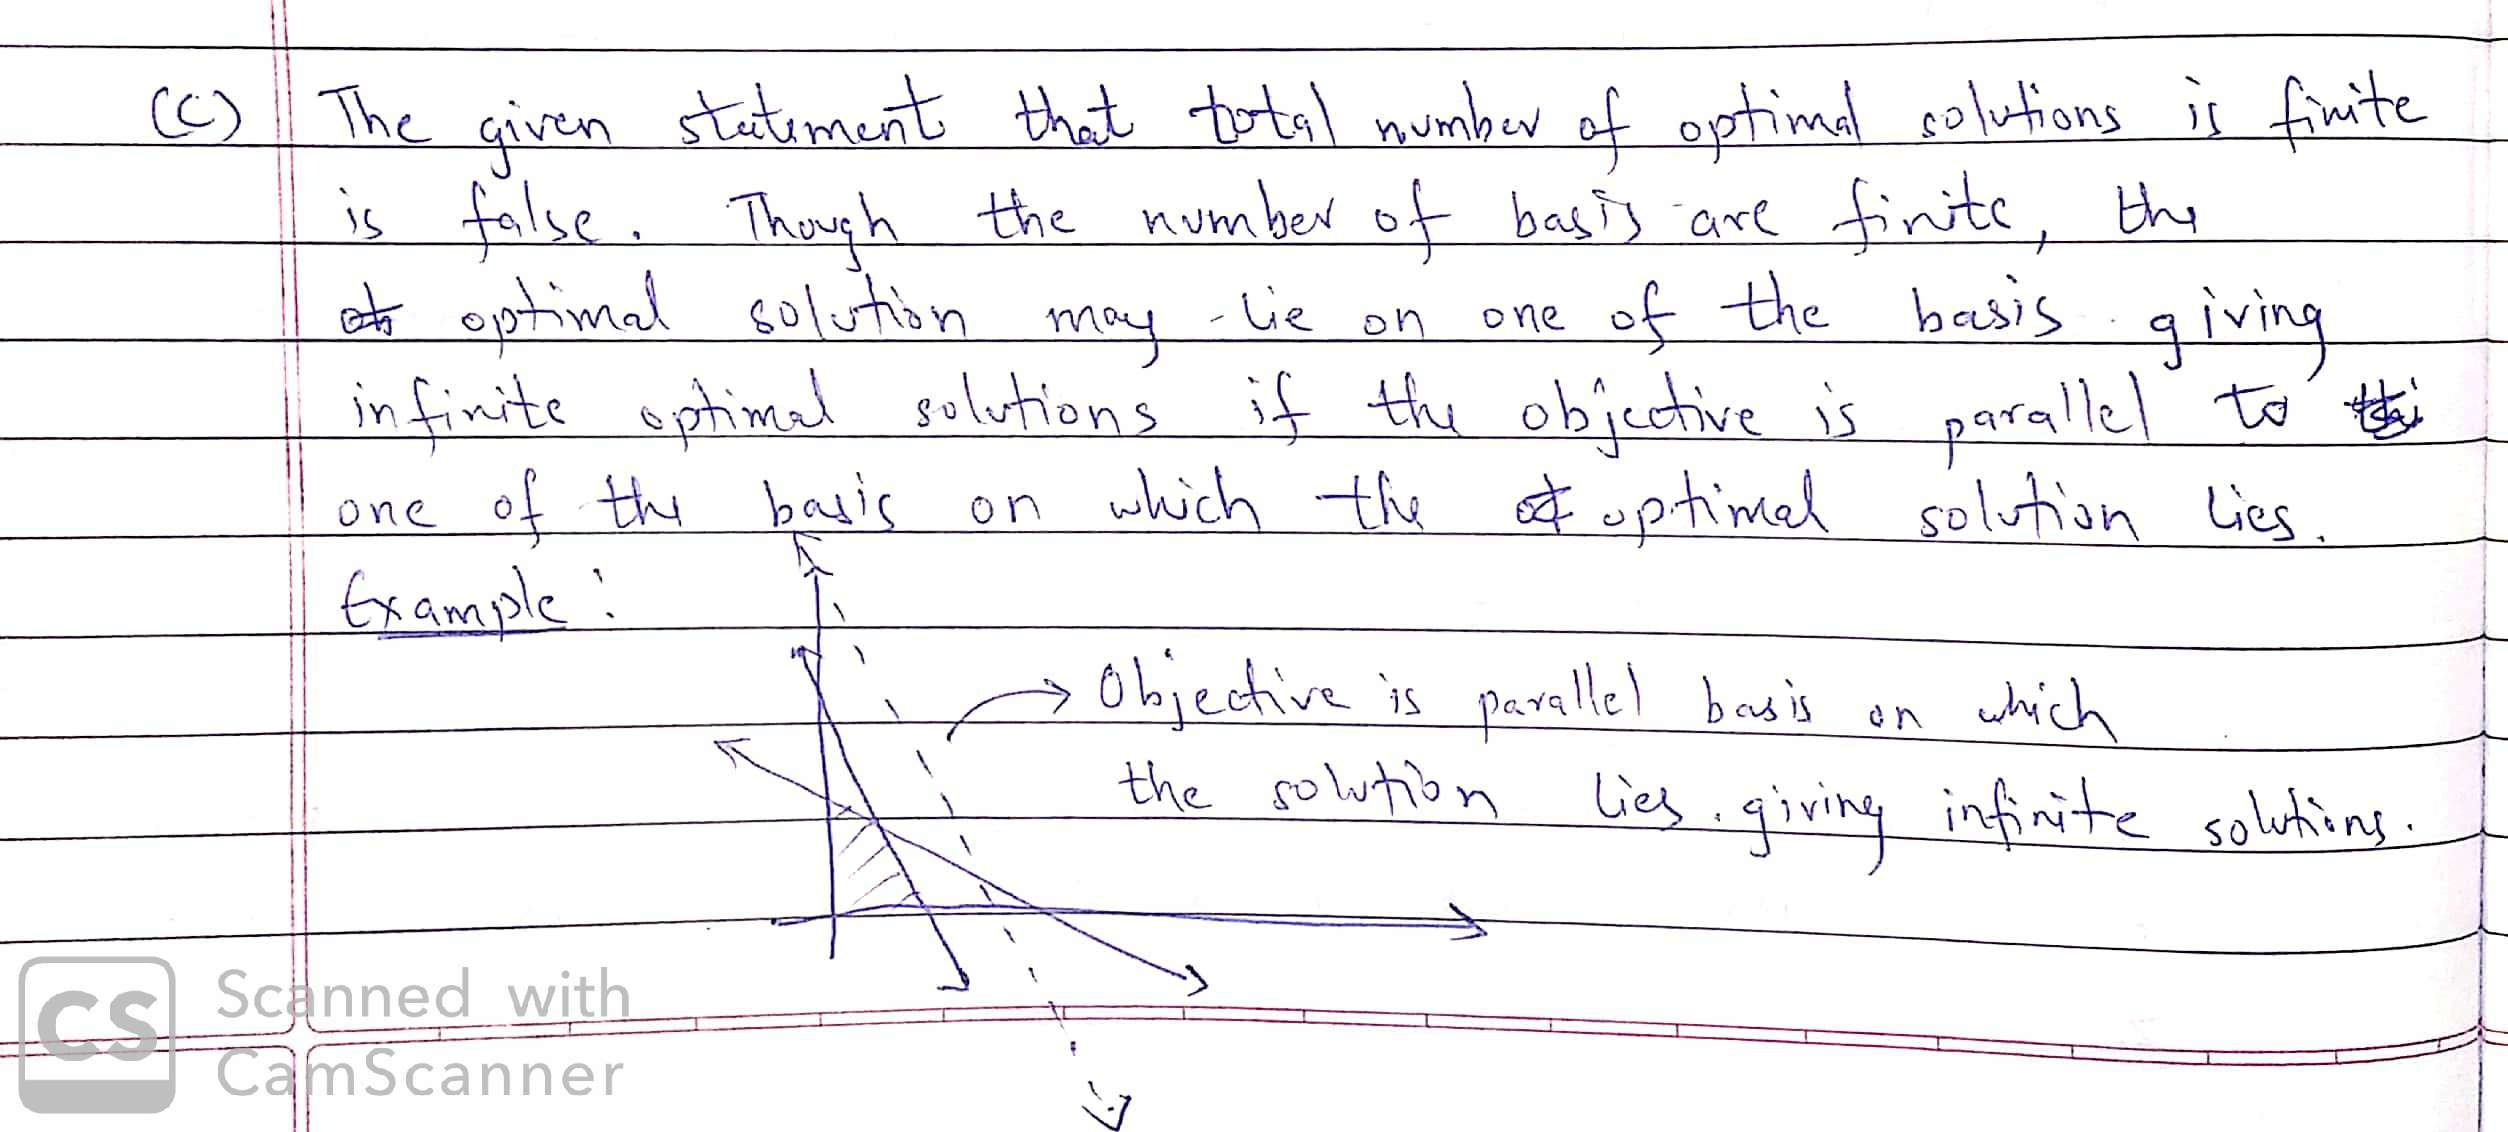 (C) The given statement that total number of optimal solutions is finite
is false. Though the number of basis are finite, the
optimal solution may lie on one of the basis giving
infinite optimal solutions if the objective is parallel to
one of the basis on which the optimal solution lies.
Example:
Objective is parallel basis on which
the solution lies. giving infinite solutions.
CS Scanned with
CamScanner